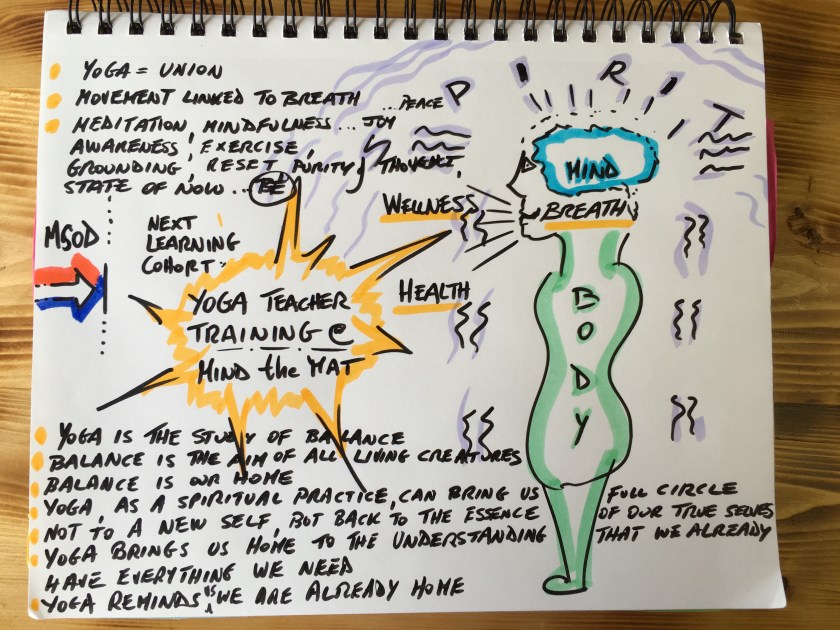 YOGA = UNION
MOVEMENT LINKED TO BREATH ...PEACE
MEDITATION, MINDFULNESS... JOY
AWARENESS, EXERCISE,
GROUNDING, RESET, PURITY, THOUGHT,
STATE OF NOW... BE
SPIRIT
MIND
BREATH
BODY
WELLNESS
HEALTH
MSOD
NEXT
LEARNING
COHORT:
YOGA TEACHER
TRAINING @
MIND the MAT
YOGA IS THE STUDY OF BALANCE
BALANCE IS THE AIM OF ALL LIVING CREATURES
BALANCE IS OUR HOME
YOGA, AS A SPIRITUAL PRACTICE, CAN BRING US FULL CIRCLE
NOT TO A NEW SELF, BUT BACK TO THE ESSENCE OF OUR TRUE SELVES
YOGA BRINGS US HOME TO THE UNDERSTANDING THAT WE ALREADY
HAVE EVERYTHING WE NEED
YOGA REMINDS US WE ARE ALREADY HOME